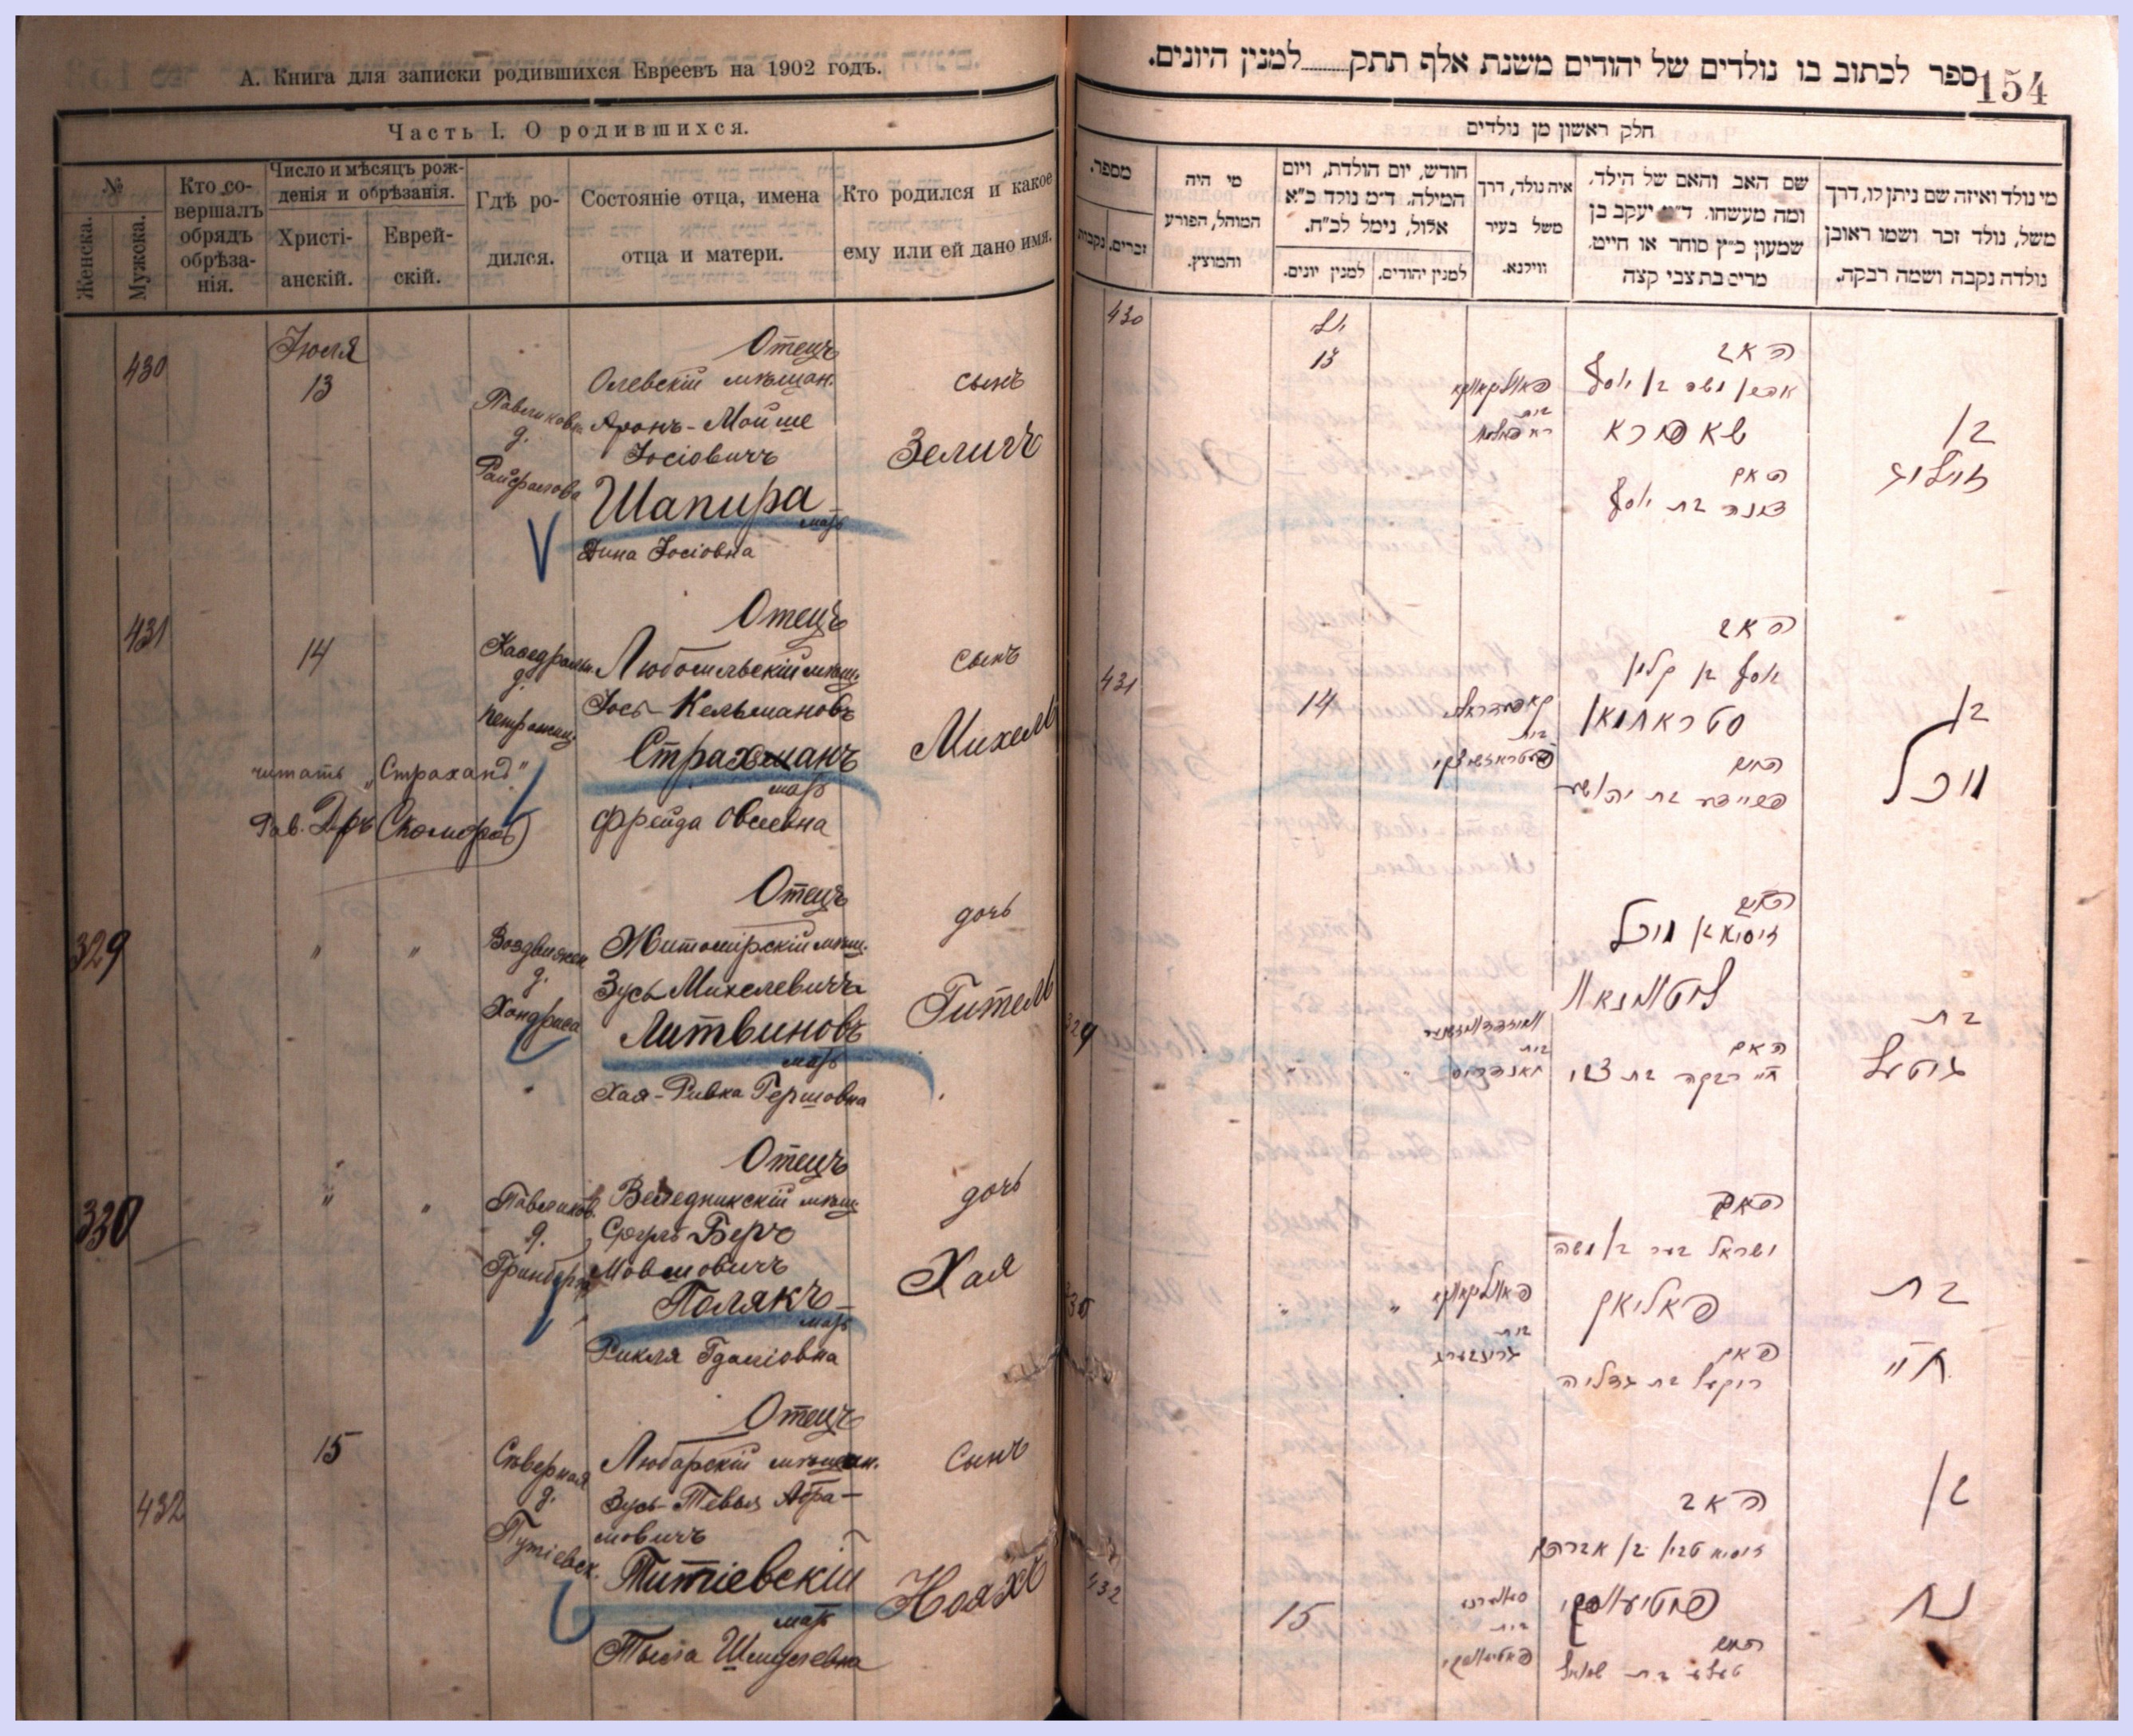 А. Книга для записки родившихся Евреевъ на 1902 годъ.
Часть I. О родившихся.
№
Женска.
Мужска.
Кто со-
вершалъ
обрядъ
обрѣза-
нія.
Число и мѣсяцъ рож-
денія и обрѣзанія.
Христі-
анскій.
Еврей-
скій.
Гдѣ ро-
дился.
Состояніе отца, имена
отца и матери.
Кто родился и какое
ему или ей дано имя.
430
Іюля
13
Отецъ
Олевскій мѣщан.
Аронъ-Мойше
Іосіовичъ
Шапира
мать
Дина Іосіовна
сынъ
Зелигъ
431
14
Отецъ
Любомльскій мѣщ.
Іось-Кельмановъ
Страхманъ
мать
Фрейда Овсеевна
сынъ
Михель
читать „Страханд"
Рав.
329
" "
Воздвижен.
д.
Отецъ
Житомірскій мѣщ.
Зусь Михелевичъ
Литвиновъ
мать
Хая-Ривка Гершовна
дочь
Гитель
330
" "
Павликов.
д.
Гринберга
Отецъ
Веледникскій мѣщ.
Срулъ Беръ
Мовшовичъ
Полякъ
мать
Рикля Гдаліовна
дочь
Хая
432
15
Сѣверная
д.
Путіевск.
Отецъ
Любарскій мѣщан.
Зусь-Тевья Абра-
мовичъ
Титіевскій
мать
Тыла Шмулевна
сынъ
Ноахъ
154
ספר לכתוב בו נולדים של יהודים משנת אלף תתק למנין היונים.
חלק ראשון מן נולדים
מספר.
זכרים.
נקבות
מי היה
המוהל, הפורע
והמוצץ.
חודש, יום הולדת, ויום
המילה. ד״מ נולד כ״א
אלול, נימל לכ״ח.
למנין יהודים.
למנין יונים.
איה נולד, דרך
משל בעיר
ווילנא.
שם האב והאם של הילד,
ומה מעשהו. ד״מ יעקב בן
שמעון כ״ץ סוחר או חייט.
מרים בת צבי קצה
מי נולד ואיזה שם ניתן לו, דרך
משל, נולד זכר ושמו ראובן
נולדה נקבה ושמה רבקה.
430
13
האב
אהרן משה בן יוסף
שאפירא
האם
דינה בת יוסף
בן
זעליג
431
14
האב
סטראחמאן
האם
פריידע בת יהושע
בן
מיכל
329
זוסיא בן מיכל
ליטווינאוו
האם
חי׳ רבקה בת צבי
בת
גיטעל
330
" "
ישראל בער בן משה
פאליאק
האם
ריקעל בת גדליה
בת
חי׳
432
15
האב
זוסיא טביא בן אברהם
האם
בן
נח